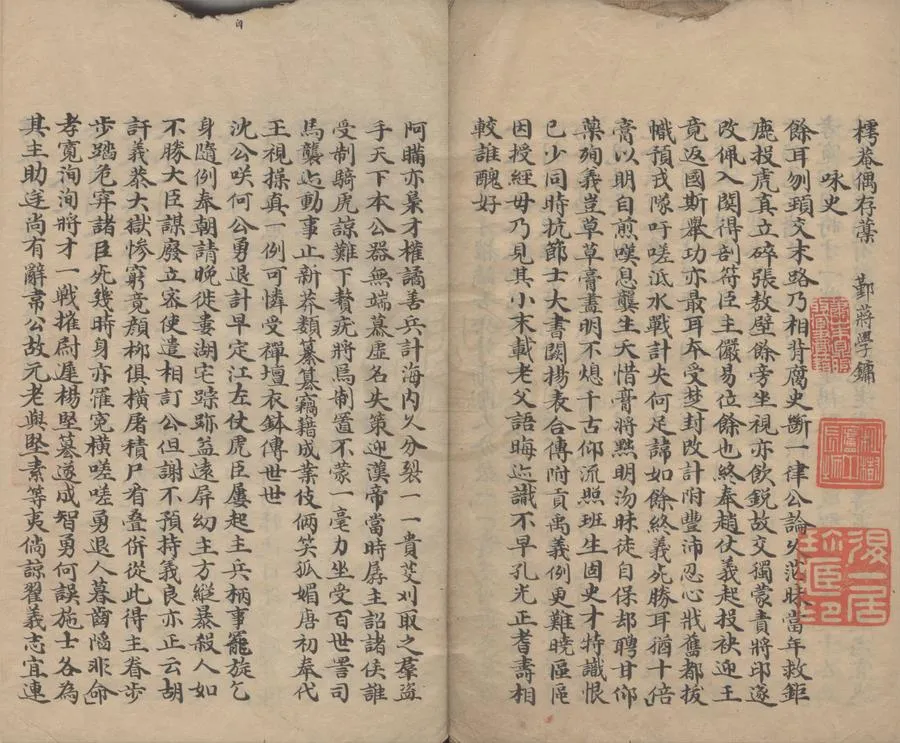 樗菴偶存藁　鄞蔣學鏞
咏史
餘耳刎頸交末路乃相背腐史斷一律公論久茫昧當年救鉅
鹿投虎真立碎張敖壁餘旁坐視亦飲銳故交獨蒙責將印遂
改佩入關得剖符臣主儼易位餘也終奉趙仗義起投袂迎王
竟返國斯舉功亦最耳夲受楚封改計附豐沛忍心戕舊都拔
幟預戎隊吁嗟泜水戰計失何足諱如餘終義死勝耳猶十倍
膏以明自煎嘆息龔生夭惜膏將㸃明沕昧徒自保却聘甘仰
藥殉義豈草草膏盡明不熄千古仰流照班生固史才特識恨
已少同時抗節士大書闕揚表合傳附貢禹義例更難曉區區
因授經毋乃見其小末載老父語晦迹識不早孔光正耆壽相
較誰醜好
阿瞞亦梟才權譎善兵計海內久分裂一一貴艾刈取之羣盜
手天下本公器無端慕虛名失策迎漢帝當時孱主詔諸侯誰
受制騎虎諒難下贅疣將焉制置不蒙一毫力坐受百世詈司
馬襲迹動事止新莽類纂竊藉成業伎倆笑孤媚唐初奉代
王視操真一例可憐受禪壇衣鉢傳世世
沈公咲何公勇退計早定江左仗虎臣屢起主兵柄事罷旋乞
身隨例奉朝請晚徙婁湖宅踪跡益遠屏幼主方縱暴殺人如
不勝大臣謀廢立密使遣相訂公但謝不預持義良亦正云胡
訐義恭大獄慘窮竟顏柳俱橫屠積尸肴疊倂從此得主眷步
步踏危穽諸臣死幾時身亦罹寃橫嗟嗟勇退人暮齒隕非命
孝寬洵洵將才一戰摧尉遲楊堅簒遂成智勇何誤施士各為
其主助逆尚有辭歸公故元老與堅素等夷倘諒翟義志宜連